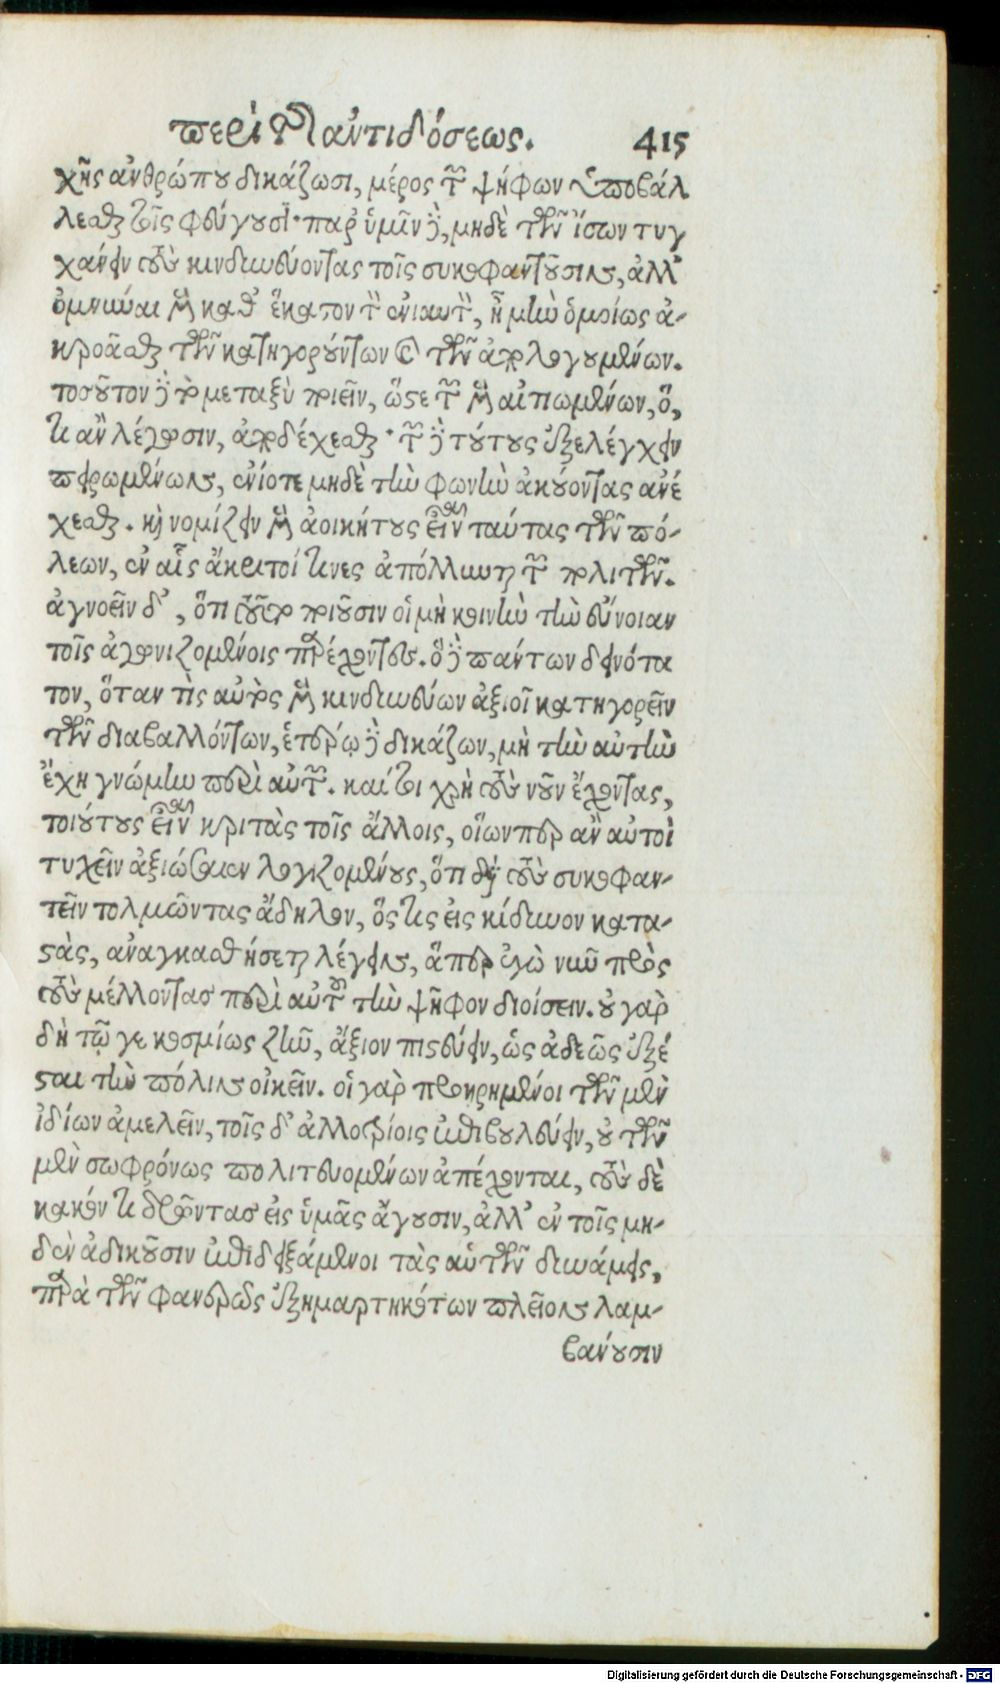 περὶ τῆς ἀντιδόσεως. 415
χῆς ἀνθρώπου δικάζωσι, μέρος τῶν ψήφων ὑποβάλ
λεσθαι τοῖς φεύγουσι· παρ' ὑμῖν δὲ, μηδὲ τῶν ἴσων τυγ
χάνειν τοὺς κινδυνεύοντας τοῖς συκοφαντοῦσιν, ἀλλ'
ὀμνύναι μὲν καθ' ἕκαστον τὸν ἐνιαυτὸν, ἦ μὴν ὁμοίως ἀ-
κροᾶσθαι τῶν κατηγορούντων καὶ τῶν ἀπολογουμένων.
τοσοῦτον δὲ τὸ μεταξὺ ποιεῖν, ὥστε τῶν μὲν αἰτιωμένων, ὅ,
τι ἂν λέγωσιν, ἀποδέχεσθαι· τῶν δὲ τούτους ἐξελέγχειν
πειρωμένων, ἐνίοτε μηδὲ τὴν φωνὴν ἀκούοντας ἀνέ
χεσθαι. καὶ νομίζειν μὲν ἀοικήτους εἶναι ταύτας τῶν πό-
λεων, ἐν αἷς ἄκριτοί τινες ἀπόλλυνται τῶν πολιτῶν.
ἀγνοεῖν δ', ὅτι τοῦτο ποιοῦσιν οἱ μὴ κοινὴν τὴν εὔνοιαν
τοῖς ἀγωνιζομένοις παρέχοντες. ὃ δὲ πάντων δεινότα
τον, ὅταν τὶς αὐτὸς μὲν κινδυνεύων ἀξιοῖ κατηγορεῖν
τῶν διαβαλλόντων, ἑτέρῳ δὲ δικάζων, μὴ τὴν αὐτὴν
ἔχῃ γνώμην περὶ αὐτῶν. καί τοι χρὴ τοὺς νοῦν ἔχοντας,
τοιούτους εἶναι κριτὰς τοῖς ἄλλοις, οἵων περ ἂν αὐτοὶ
τυχεῖν ἀξιώσαιεν λογιζομένους, ὅτι διὰ τοὺς συκοφαν-
τεῖν τολμῶντας ἄδηλον, ὅς τις εἰς κίδυνον κατα-
στὰς, ἀναγκασθήσεται λέγειν, ἅπερ ἐγὼ νῦν πρὸς
τοὺς μέλλοντας περὶ αὐτοῦ τὴν ψῆφον διοίσειν. οὐ γὰρ
δὴ τῷ γε κοσμίως ζῆν, ἄξιον πιστεύειν, ὡς ἀδεῶς ἐξέ
σται τὴν πόλιν οἰκεῖν. οἱ γὰρ προῃρημένοι τῶν μὲν
ἰδίων ἀμελεῖν, τοῖς δ' ἀλλοτρίοις ἐπιβουλεύειν, οὐ τῶν
μὲν σωφρόνως πολιτευομένων ἀπέχονται, τοὺς δὲ
κακόν τι δρῶντας εἰς ὑμᾶς ἄγουσιν, ἀλλ' ἐν τοῖς μη-
δὲν ἀδικοῦσιν ἐπιδειξάμενοι τὰς αὑτῶν δυνάμεις,
παρὰ τῶν φανερῶς ἐξημαρτηκότων πλεῖον λαμ-
βάνουσιν